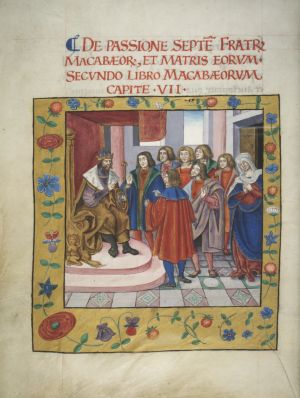 DE PASSIONE SEPTĒ FRATRŪ
MACABÆOR, ET MATRIS EORVM·
SECVNDO LIBRO MACABÆORVM
CAPITE·VII·